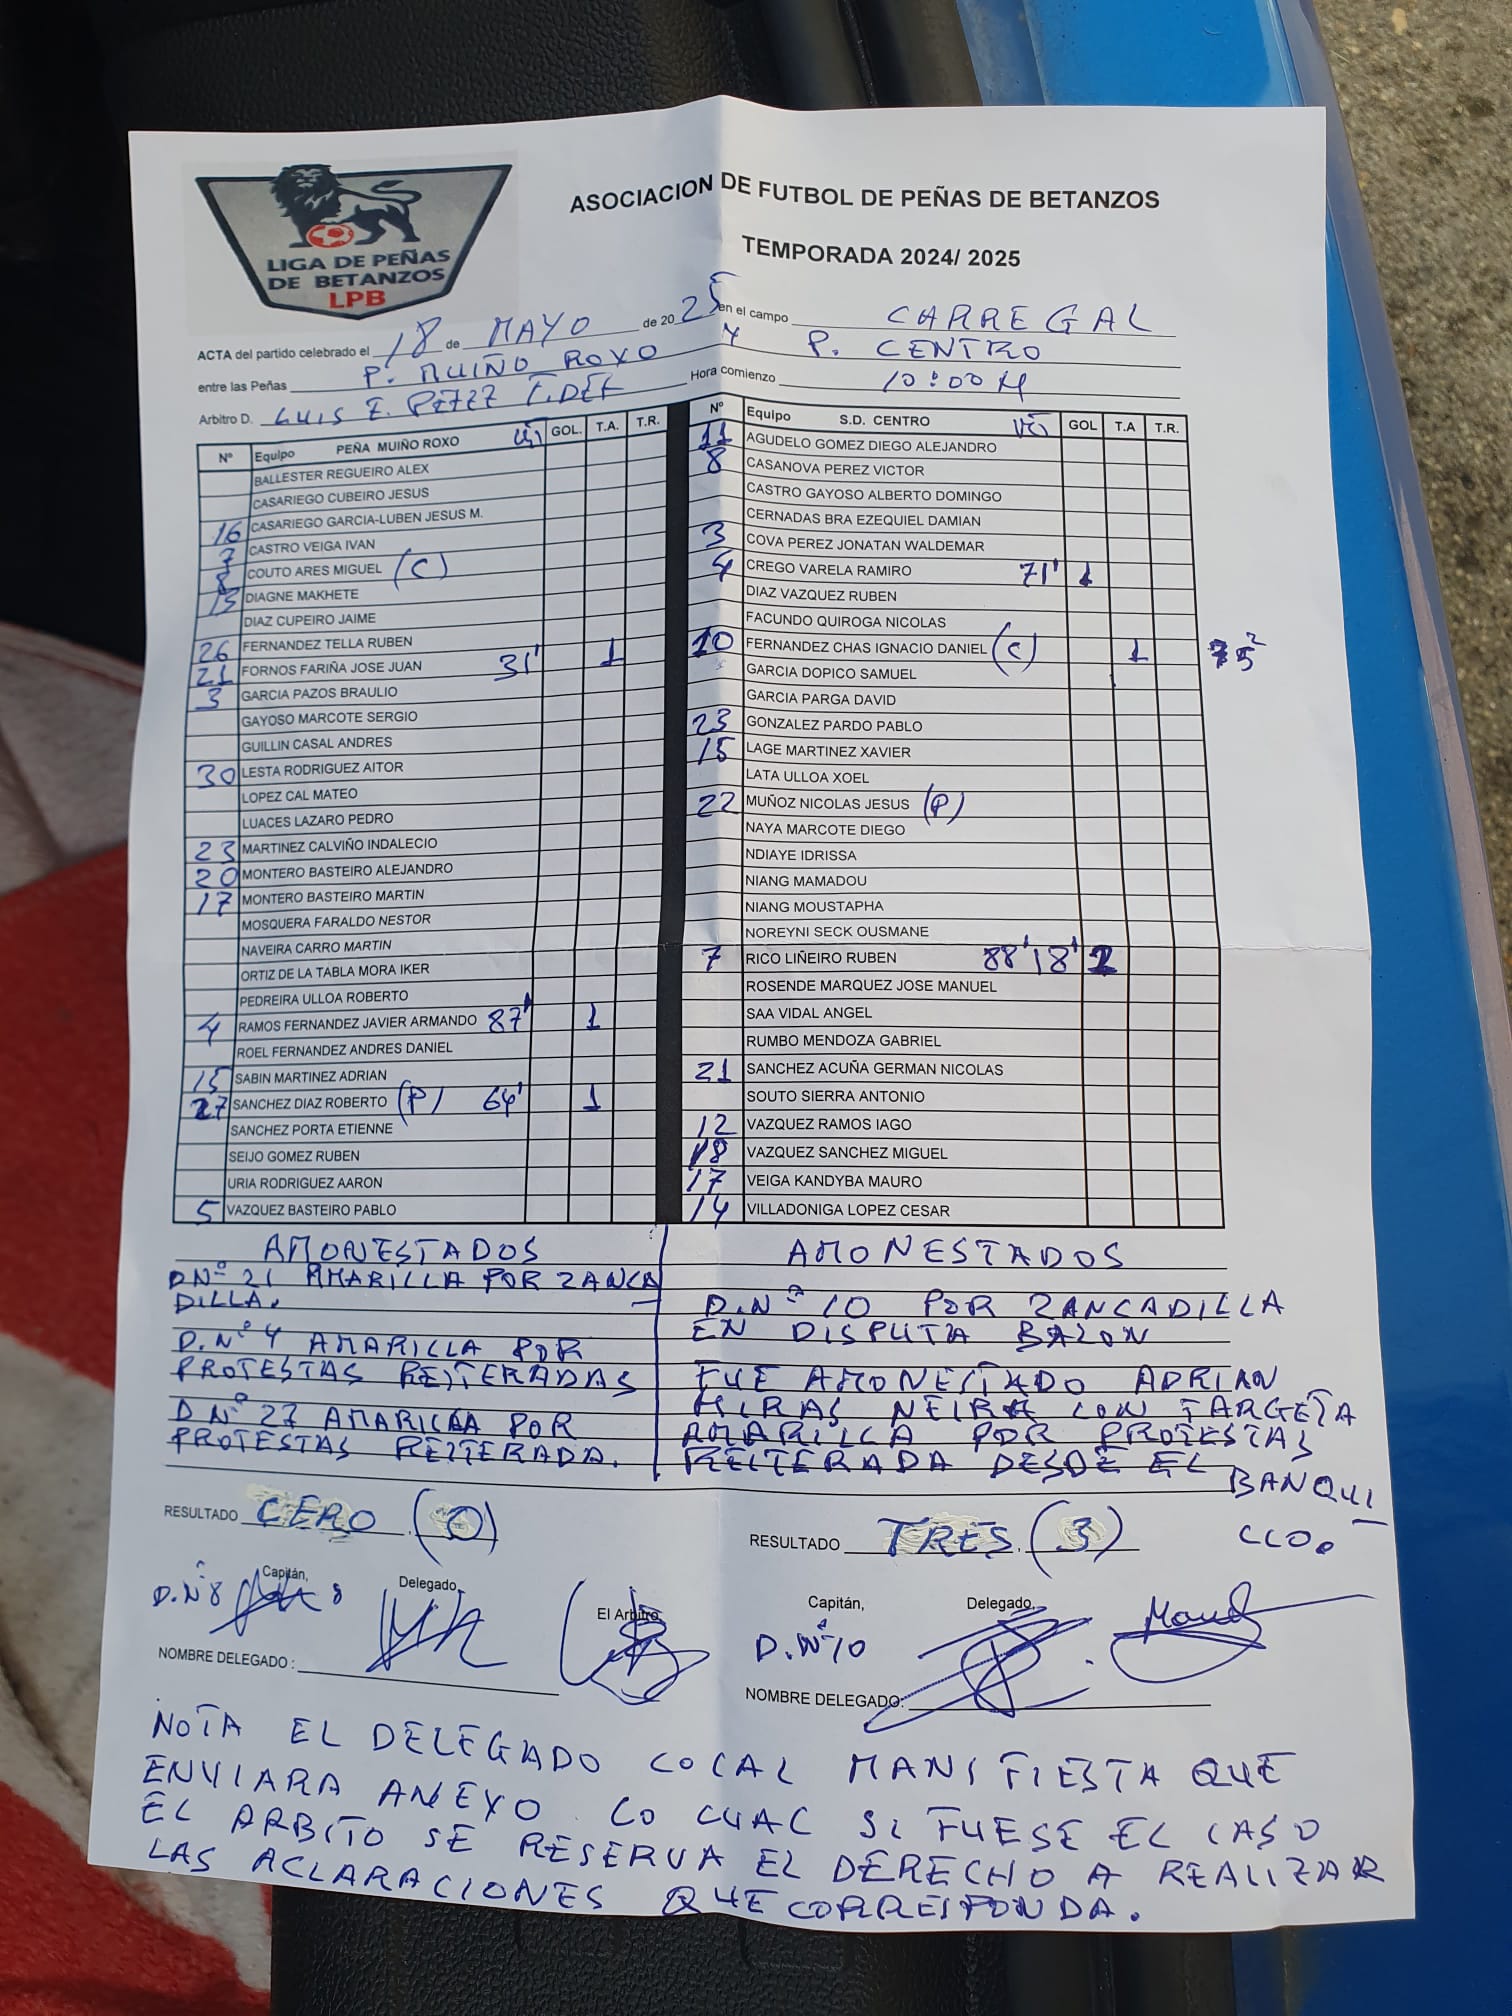 LIGA DE PEÑAS
DE BETANZOS
LPB
ASOCIACION DE FUTBOL DE PEÑAS DE BETANZOS
TEMPORADA 2024/ 2025
ACTA del partido celebrado el 18 de MAYO de 2025 en el campo CARREGAL
entre las Peñas P. MUIÑO ROXO Y P. CENTRO
Arbitro D. LUIS E. PEREZ Hora comienzo 10:00 H
Nº Equipo PEÑA MUIÑO ROXO GOL. T.A. T.R.
BALLESTER REGUEIRO ALEX
CASARIEGO CUBEIRO JESUS
16 CASARIEGO GARCIA-LUBEN JESUS M.
7 CASTRO VEIGA IVAN
8 COUTO ARES MIGUEL (C)
13 DIAGNE MAKHETE
DIAZ CUPEIRO JAIME
26 FERNANDEZ TELLA RUBEN
21 FORNOS FARIÑA JOSE JUAN 31' 1
3 GARCIA PAZOS BRAULIO
GAYOSO MARCOTE SERGIO
GUILLIN CASAL ANDRES
30 LESTA RODRIGUEZ AITOR
LOPEZ CAL MATEO
LUACES LAZARO PEDRO
23 MARTINEZ CALVIÑO INDALECIO
20 MONTERO BASTEIRO ALEJANDRO
17 MONTERO BASTEIRO MARTIN
MOSQUERA FARALDO NESTOR
NAVEIRA CARRO MARTIN
ORTIZ DE LA TABLA MORA IKER
PEDREIRA ULLOA ROBERTO
4 RAMOS FERNANDEZ JAVIER ARMANDO 87' 1
ROEL FERNANDEZ ANDRES DANIEL
15 SABIN MARTINEZ ADRIAN
27 SANCHEZ DIAZ ROBERTO (P) 64' 1
SANCHEZ PORTA ETIENNE
SEIJO GOMEZ RUBEN
URIA RODRIGUEZ AARON
5 VAZQUEZ BASTEIRO PABLO
Nº Equipo S.D. CENTRO GOL T.A T.R.
11 AGUDELO GOMEZ DIEGO ALEJANDRO
8 CASANOVA PEREZ VICTOR
CASTRO GAYOSO ALBERTO DOMINGO
CERNADAS BRA EZEQUIEL DAMIAN
3 COVA PEREZ JONATAN WALDEMAR
4 CREGO VARELA RAMIRO 71' 1
DIAZ VAZQUEZ RUBEN
FACUNDO QUIROGA NICOLAS
10 FERNANDEZ CHAS IGNACIO DANIEL (C) 1
GARCIA DOPICO SAMUEL
GARCIA PARGA DAVID
23 GONZALEZ PARDO PABLO
15 LAGE MARTINEZ XAVIER
LATA ULLOA XOEL
22 MUÑOZ NICOLAS JESUS (P)
NAYA MARCOTE DIEGO
NDIAYE IDRISSA
NIANG MAMADOU
NIANG MOUSTAPHA
NOREYNI SECK OUSMANE
7 RICO LIÑEIRO RUBEN 88' 18' 2
ROSENDE MARQUEZ JOSE MANUEL
SAA VIDAL ANGEL
RUMBO MENDOZA GABRIEL
21 SANCHEZ ACUÑA GERMAN NICOLAS
SOUTO SIERRA ANTONIO
12 VAZQUEZ RAMOS IAGO
18 VAZQUEZ SANCHEZ MIGUEL
17 VEIGA KANDYBA MAURO
14 VILLADONIGA LOPEZ CESAR
AMONESTADOS
D Nº 21 AMARILLA POR ZANCA
DILLA.
D. Nº 4 AMARILLA POR
PROTESTAS REITERADAS
D Nº 27 AMARILLA POR
PROTESTAS REITERADA.
AMONESTADOS
D. Nº 10 POR ZANCADILLA
EN DISPUTA BALON
FUE AMONESTADO ADRIAN
MIRAS NEIRA CON TARGETA
AMARILLA POR PROTESTAS
REITERADA DESDE EL BANQUI
LLO.
RESULTADO CERO (0)
RESULTADO TRES (3)
Capitán, Delegado, El Arbitro
D. Nº 8
NOMBRE DELEGADO :
Capitán, Delegado,
D. Nº 10
NOMBRE DELEGADO:
NOTA EL DELEGADO LOCAL MANIFIESTA QUE
ENVIARA ANEXO LO CUAL SI FUESE EL CASO
EL ARBITO SE RESERVA EL DERECHO A REALIZAR
LAS ACLARACIONES QUE CORRESPONDA.